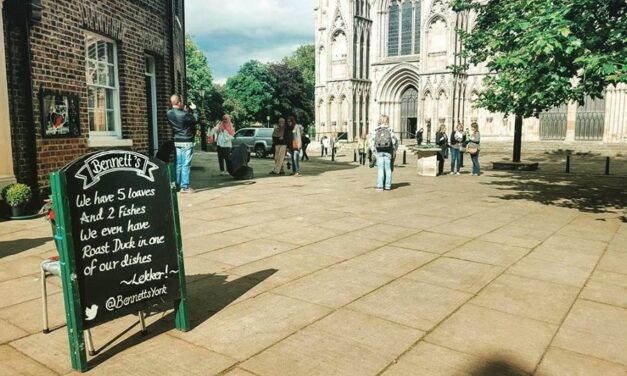 Bennett's
We have 5 loaves
And 2 Fishes
We even have
Roast Duck in one
of our dishes
~Lekker!~
@BennettsYork